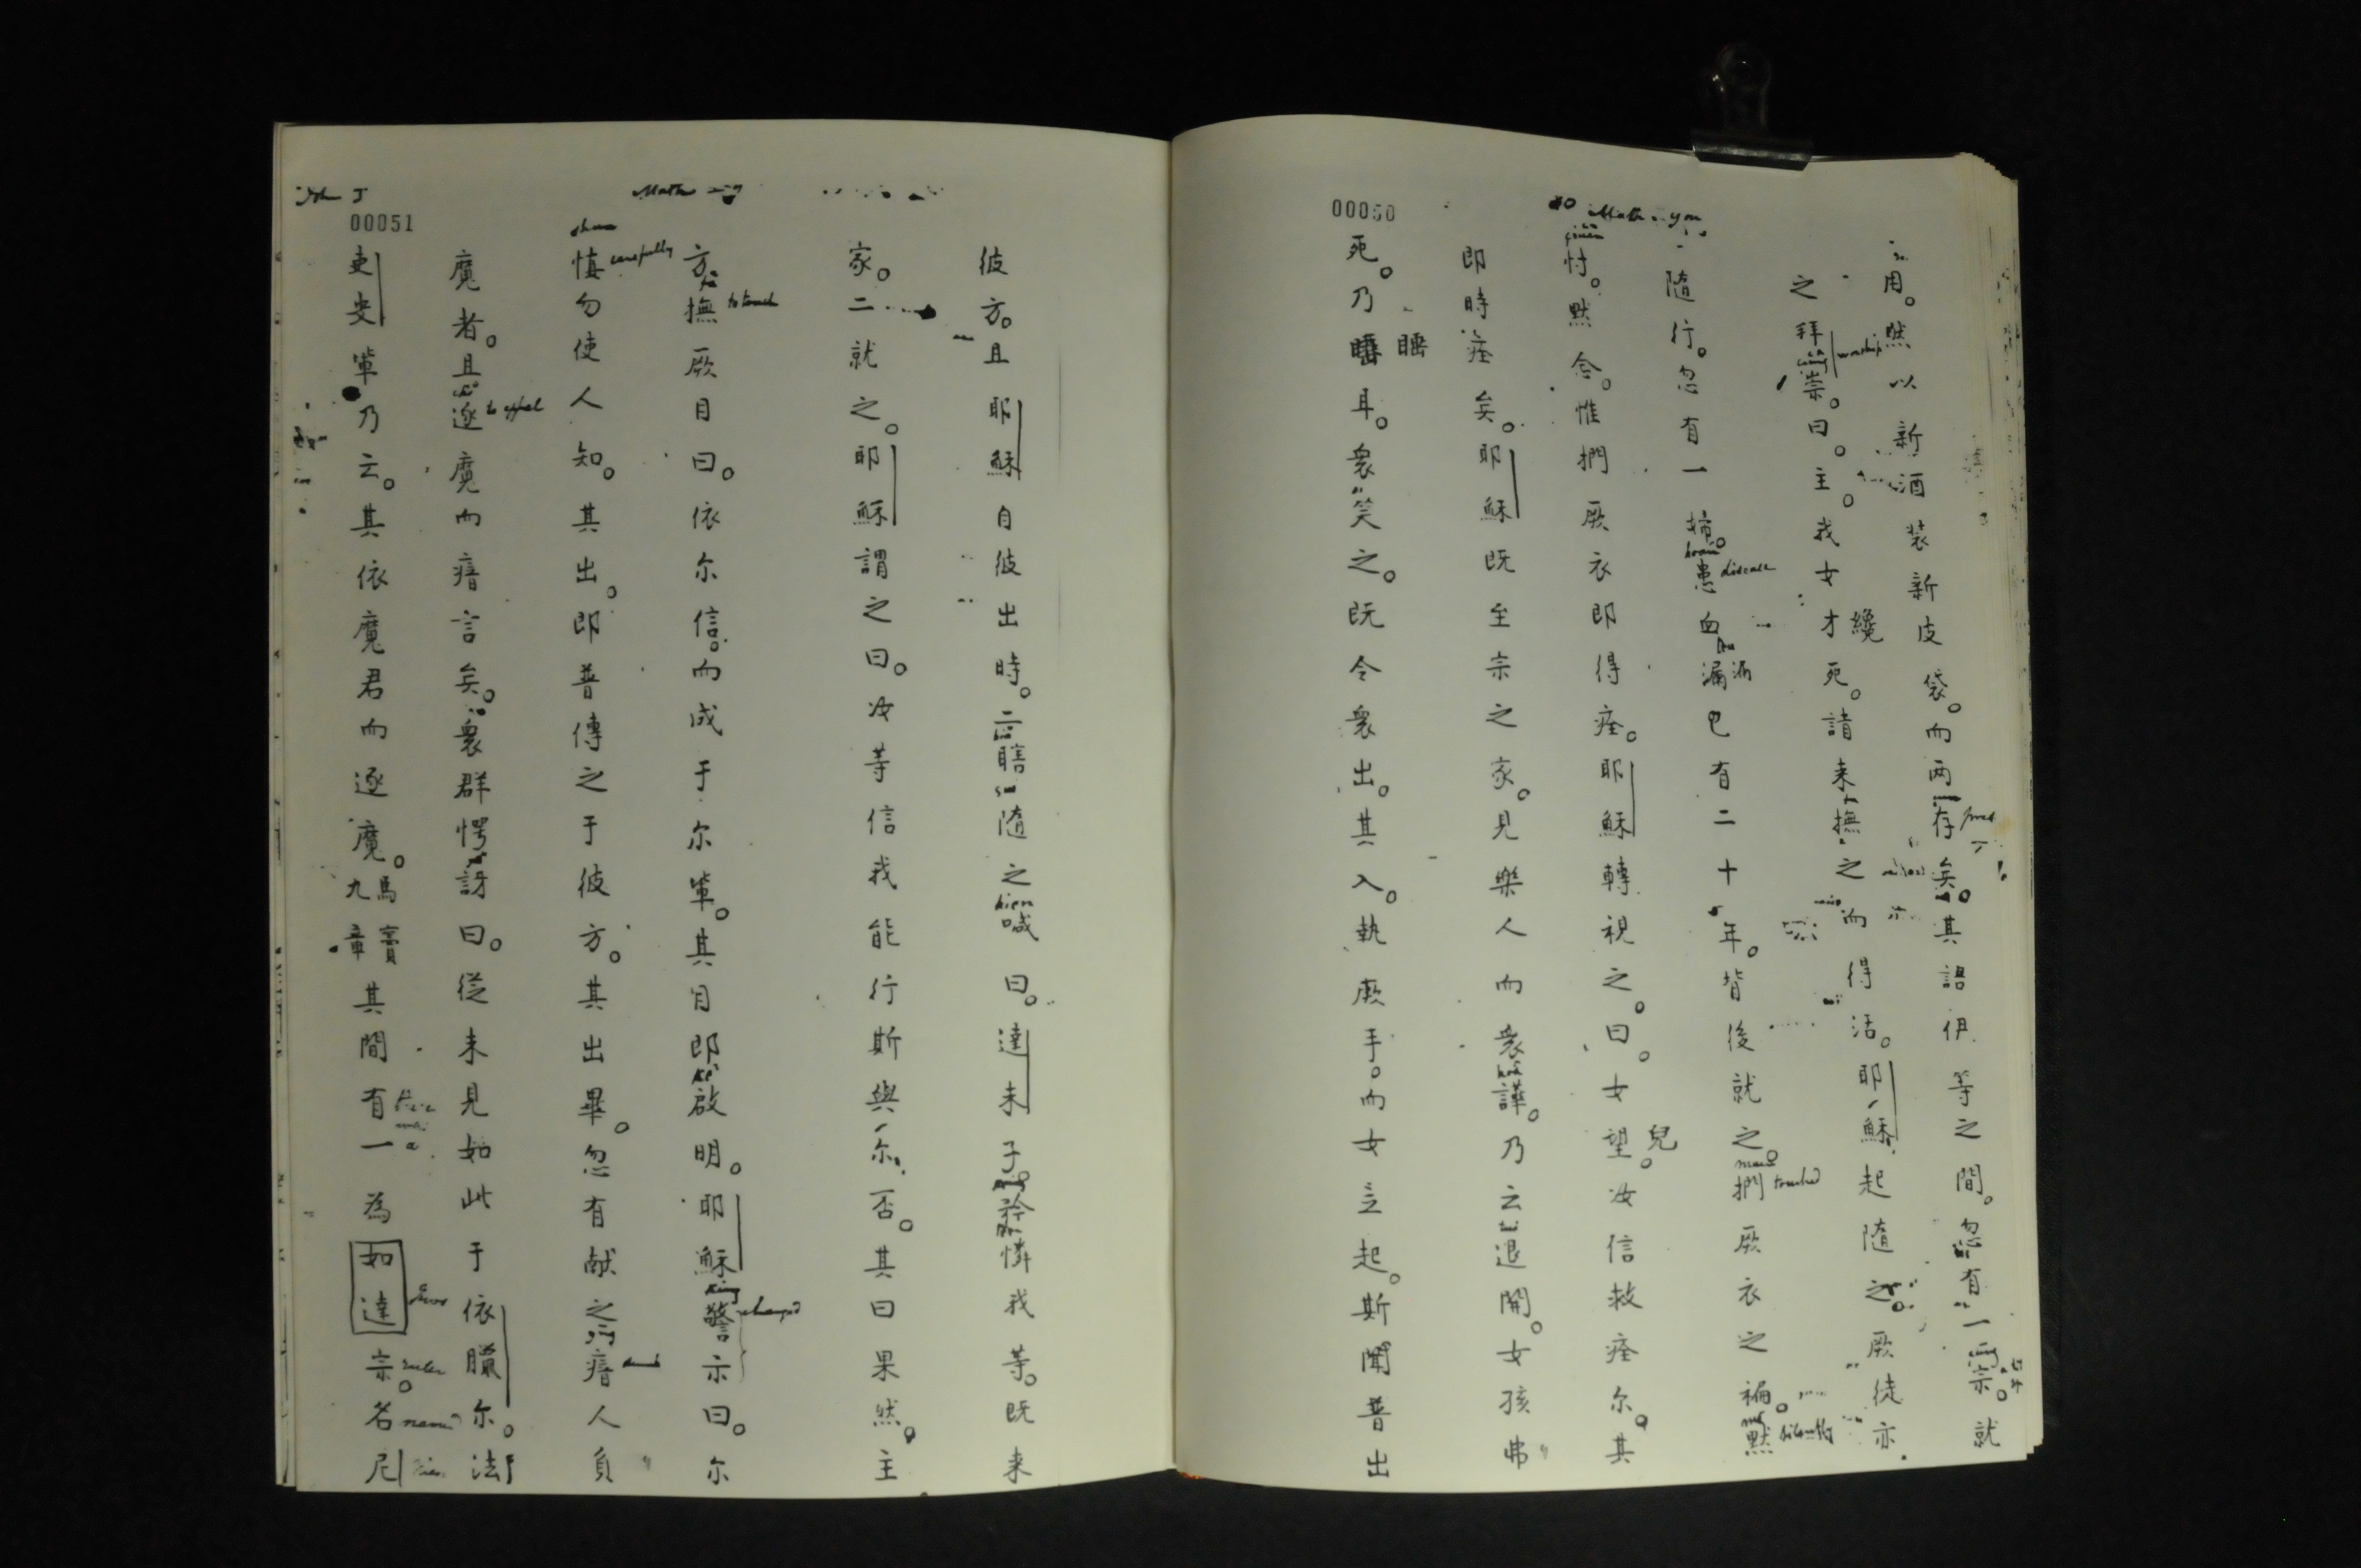 00050
用。然以新酒装新皮袋。而两存矣。其語伊等之間。忽有一宗。就
之拜崇。曰。主。我女才死。請来撫之而得活。耶穌起隨之。厥徒亦
worship
纔
隨行。忽有一婦。患血漏已有二十年。背後就之。捫厥衣之褔。默
disease
touched
silently
忖。默含。惟捫厥衣即得痊。耶穌轉視之。曰。女望。汝信救痊尔。其
兒
即時痊矣。耶穌既至宗之家。見樂人而衆譁。乃云退開。女孩弗
死。乃睡耳。衆笑之。既令衆出。其入。執厥手。而女立起。斯聞普出
00051
彼方。且耶穌自彼出時。二瞎隨之喊曰。達未子。矜憐我等。既来
家。二就之。耶穌謂之曰。汝等信我能行斯與尔否。其曰果然。主
方撫厥目曰。依尔信。而成于尔輩。其目即啟明。耶穌警示曰。尔
to touch
慎勿使人知。其出。即普傳之于彼方。其出畢。忽有献之瘖人負
carefully
魔者。且逐魔而瘖言矣。衆群愕訝曰。從未見如此于依臘尔。法
to expel
吏叓輩乃云。其依魔君而逐魔。馬竇九章其間有一為如達宗。名尼
ruler
name